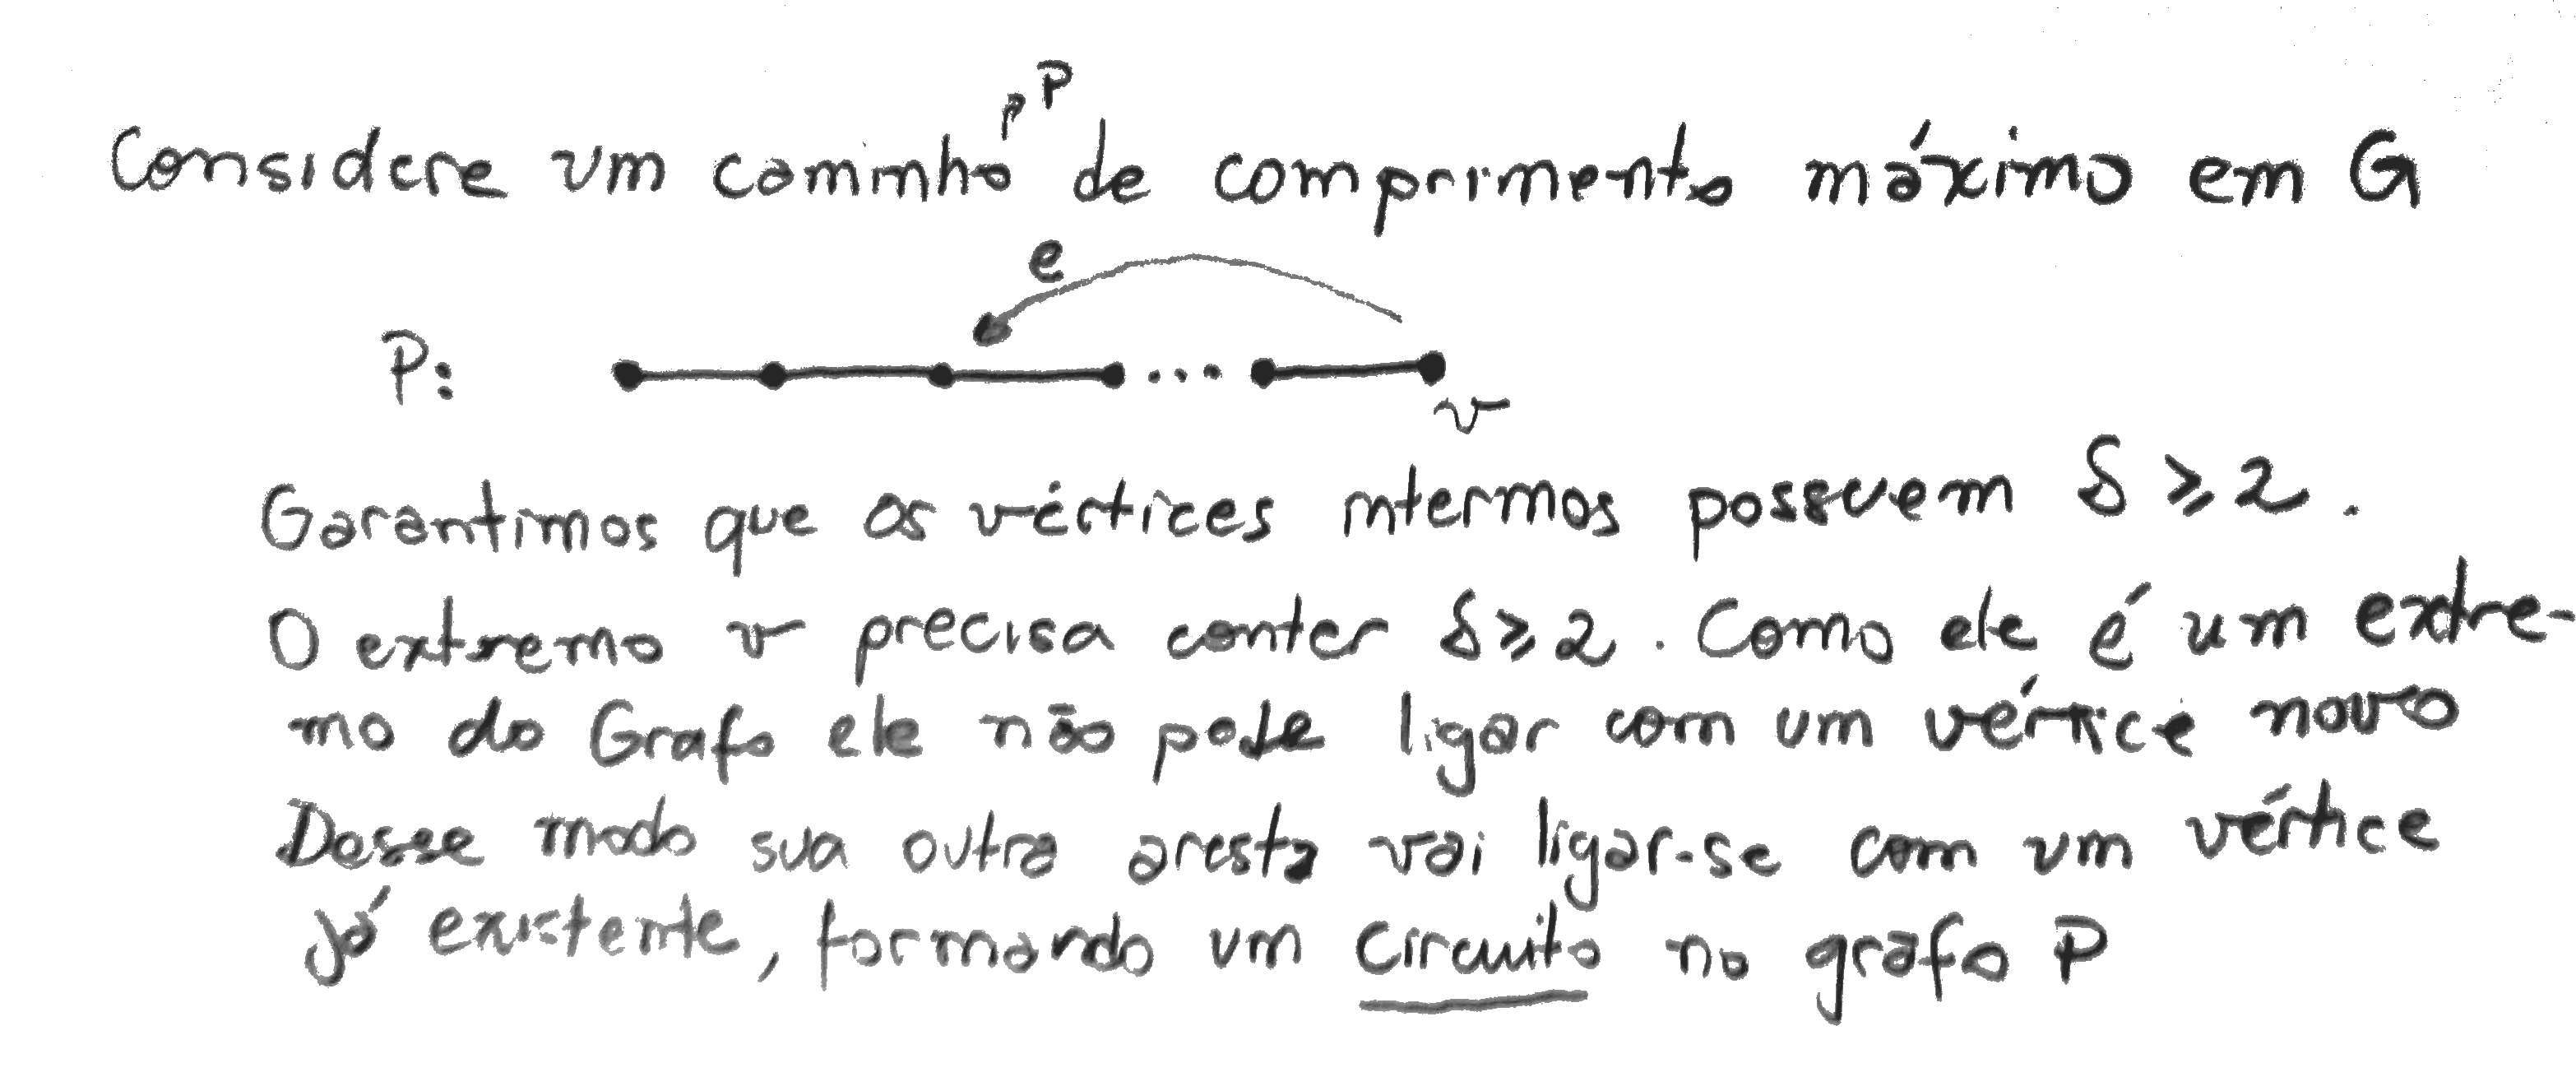 P
Considere um caminho de comprimento máximo em G
e
P:
v
Garantimos que os vértices internos possuem δ ≥ 2.
O extremo v precisa conter δ ≥ 2. Como ele é um extre-
mo do Grafo ele não pode ligar com um vértice novo
Desse modo sua outra aresta vai ligar-se com um vértice
já existente, formando um circuito no grafo P